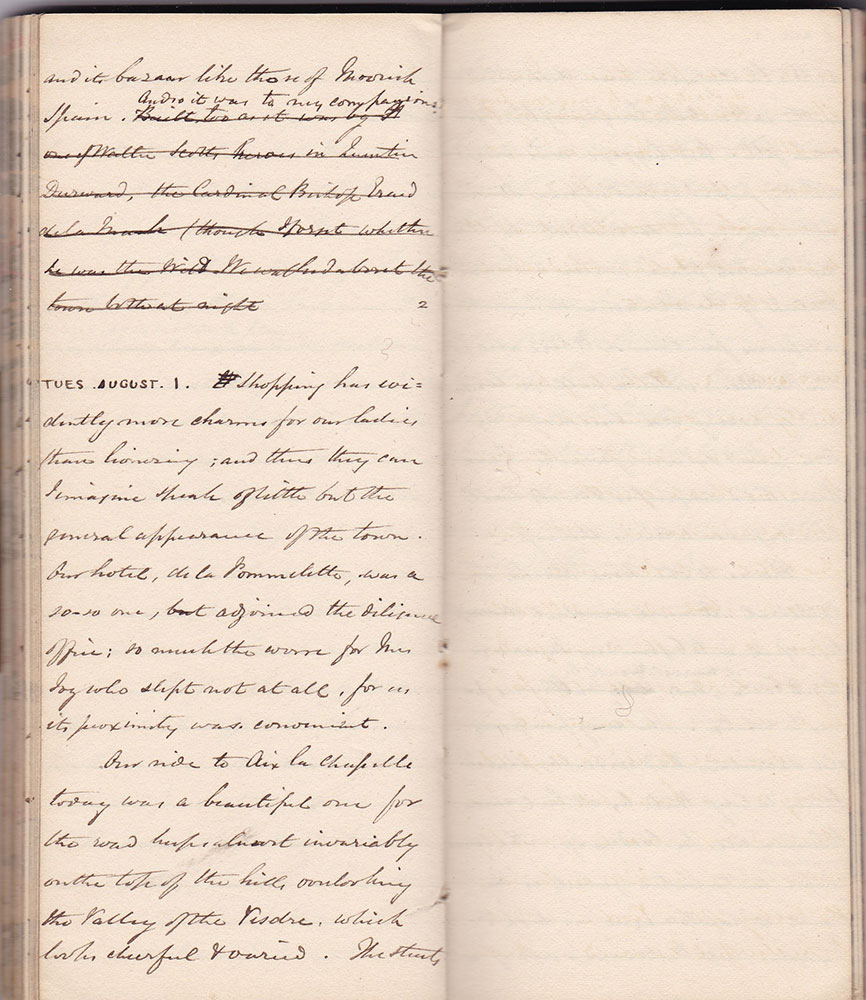 and its bazaar like those of Moorish
And so it was to my companions.
Spain. Built too as it was by A
one of Walter Scotts heroes in Quentin
Durward, the Cardinal Bishop Erard
de la Marck (though I forget whether
he was the Wild We walked about the
town both at night
2
TUES. AUGUST. 1. Shopping has evi=
dently more charms for our ladies
than lionizing; and thus they can
I imagine speak of little but the
general appearance of the town.
Our hotel, de la Pommelette, was a
so-so one, but adjoined the diligence
office; so much the worse for Mrs
Joy who slept not at all, for us
its proximity was convenient.
Our ride to Aix la Chapelle
today was a beautiful one for
the road keeps almost invariably
on the top of the hills overlooking
the Valley of the Vesdre, which
looks cheerful & varied. The streets